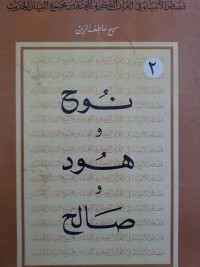 قصص الأنبياء في القرآن الكريم المجموعة من مجمع البيان الحديث
سميح عاطف الزين
٢
نوح
و
هود
و
صالح